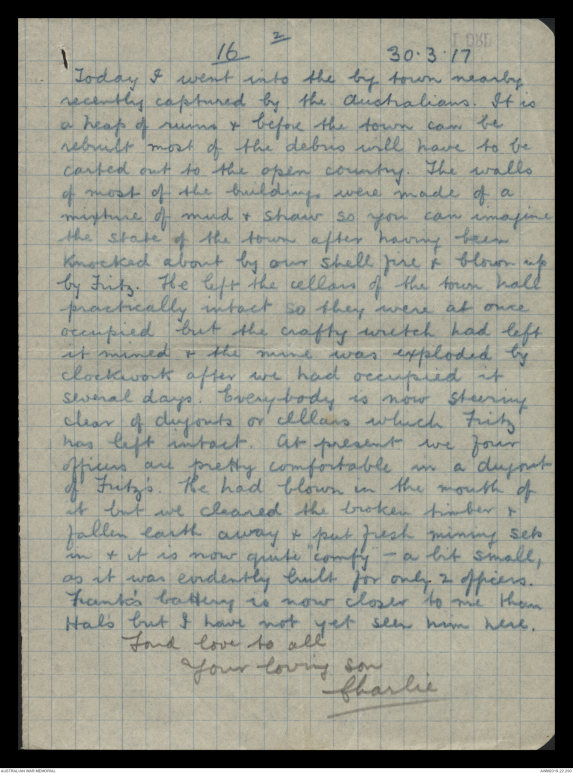 2
16 30.3.17
Today I went into the big town nearby
recently captured by the Australians. It is
a heap of ruins & before the town can be
rebuilt most of the debris will have to be
carted out to the open country. The walls
of most of the buildings were made of a
mixture of mud & straw so you can imagine
the state of the town after having been
knocked about by our shell fire & blown up
by Fritz. He left the cellars of the town hall
practically intact so they were at once
occupied but the crafty wretch had left
it mined & the mine was exploded by
clockwork after we had occupied it
several days. Everybody is now steering
clear of dugouts or cellars which Fritz
has left intact. At present we four
officers are pretty comfortable in a dugout
of Fritz's. He had blown in the mouth of
it but we cleared the broken timber &
fallen earth away & put fresh mining sets
in & it is now quite "comfy" - a bit small,
as it was evidently built for only 2 officers.
Frank's battery is now closer to me than
Hals but I have not yet seen him here.
Fond love to all
Your loving son
Charlie
AUSTRALIAN WAR MEMORIAL